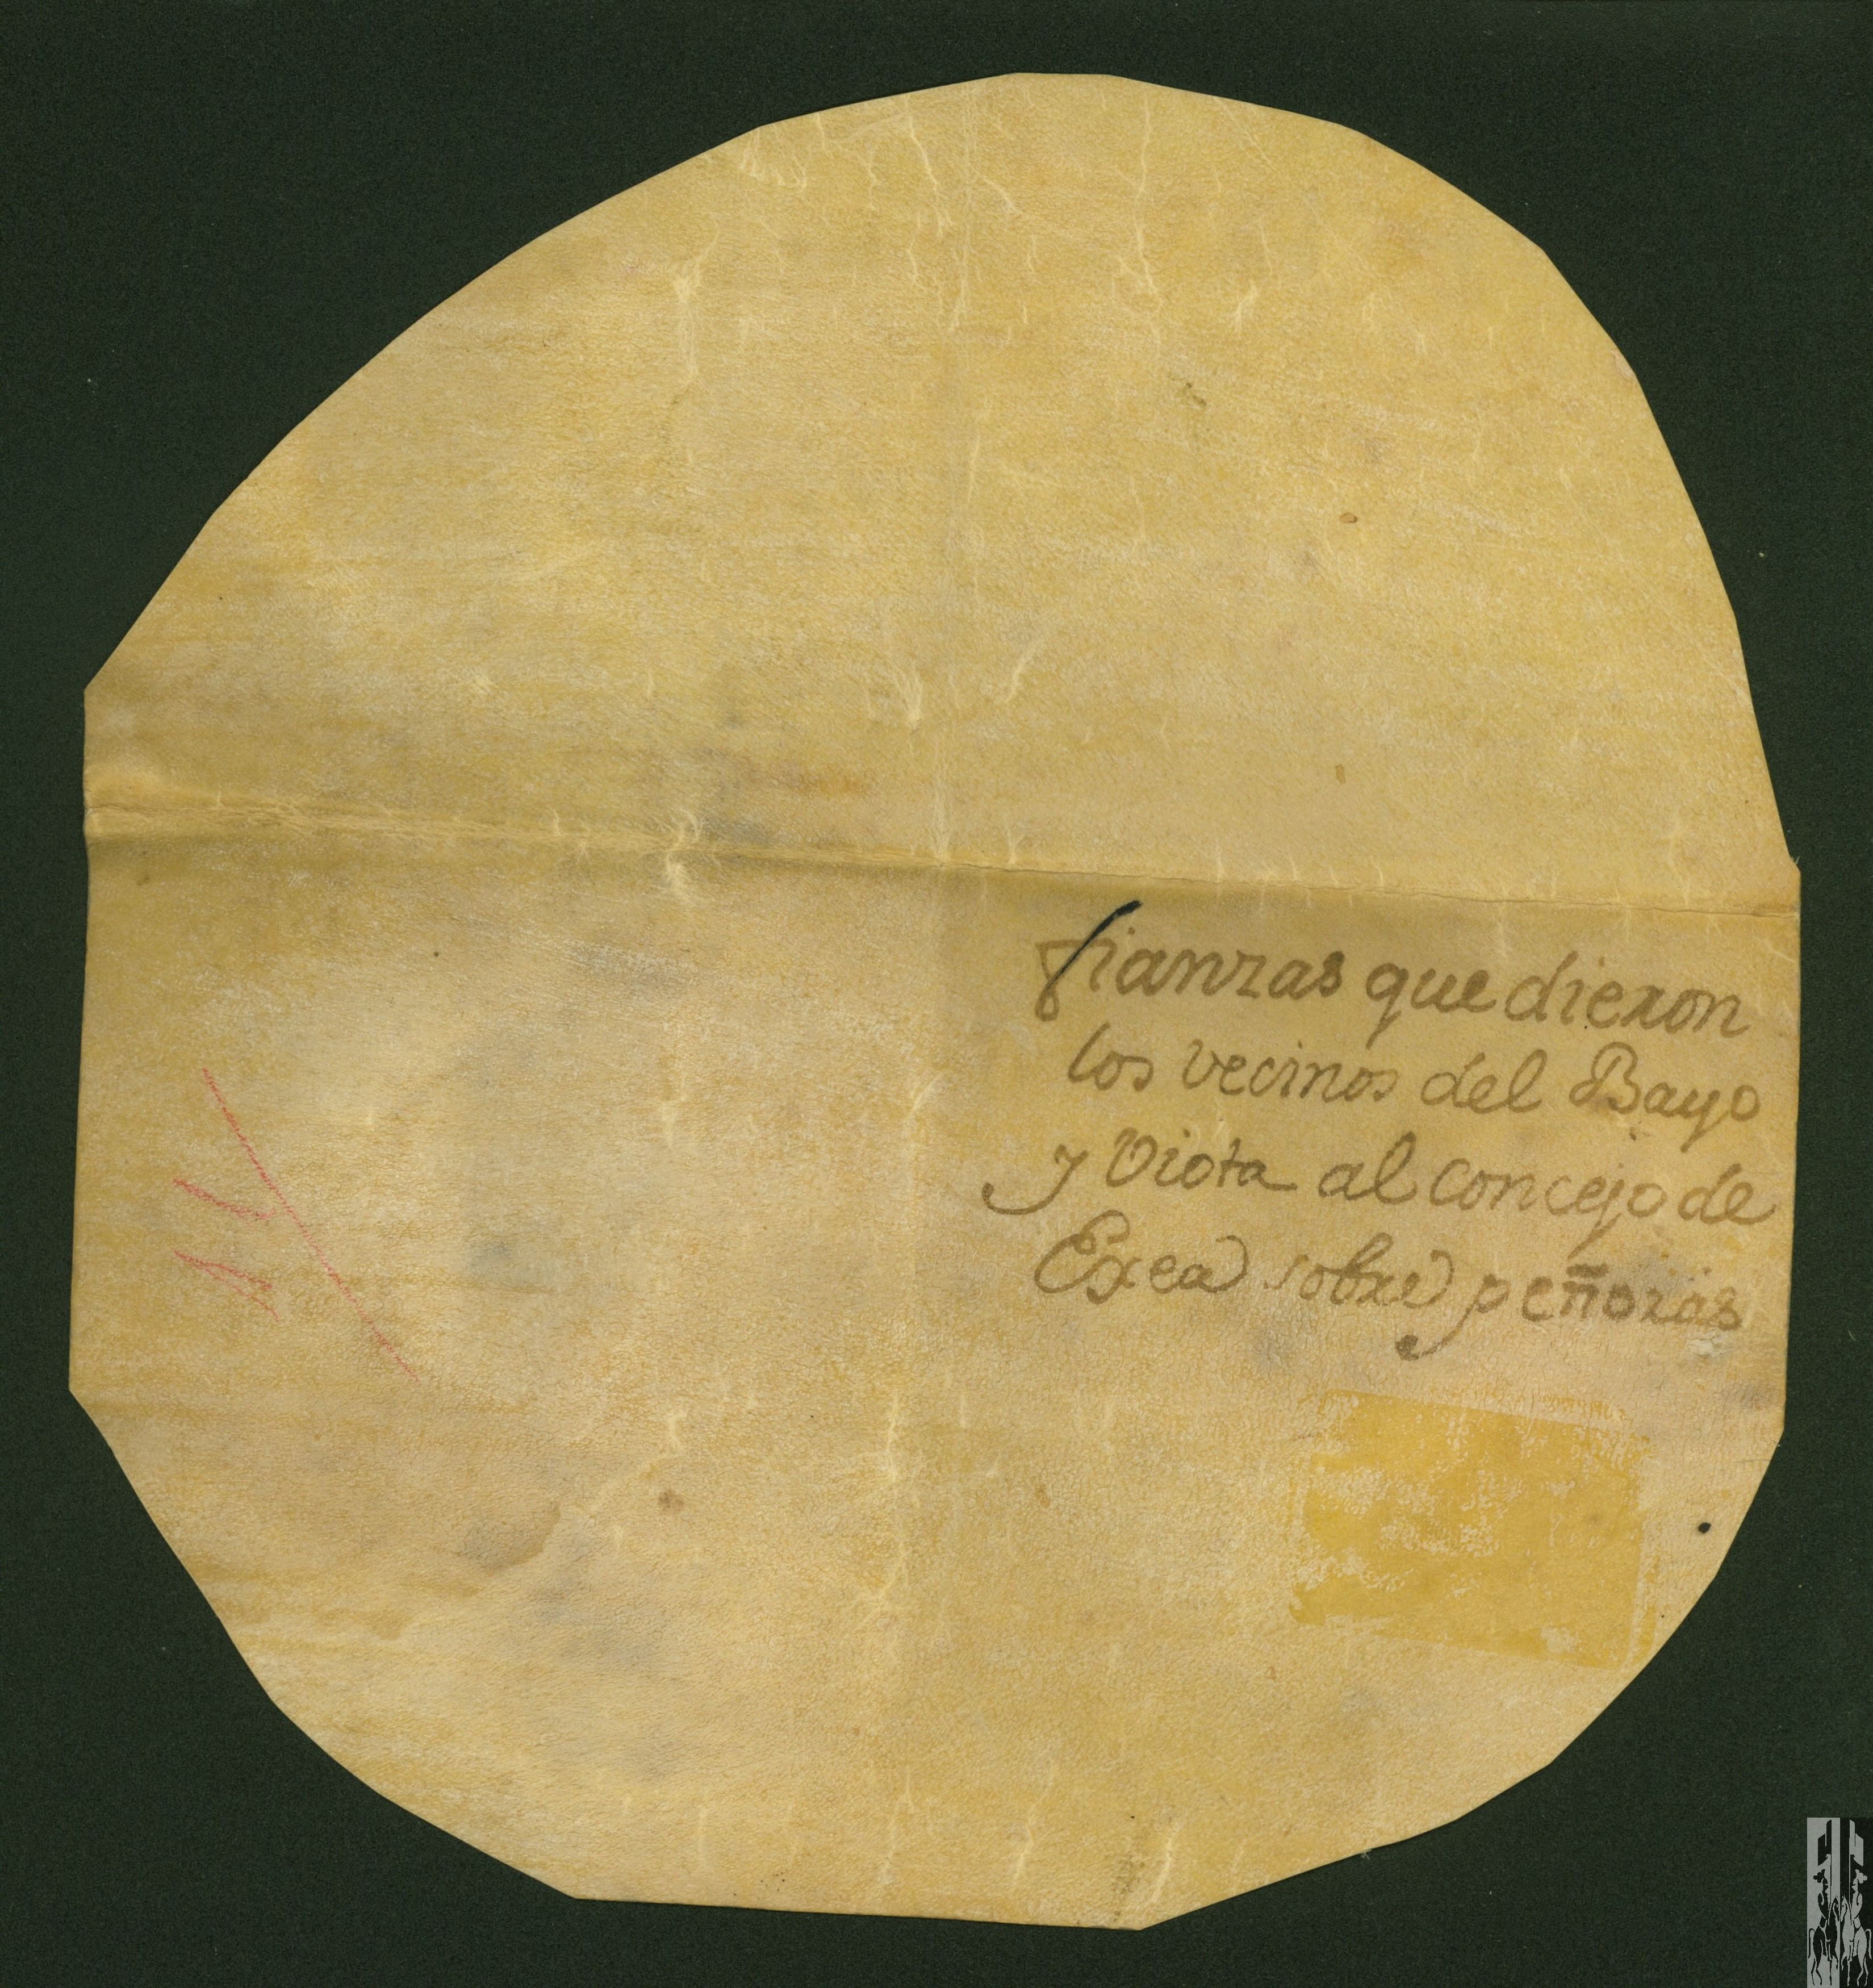 fianzas que dieron
los vecinos del Bayo
y Viota al concejo de
Exea sobre peñoras